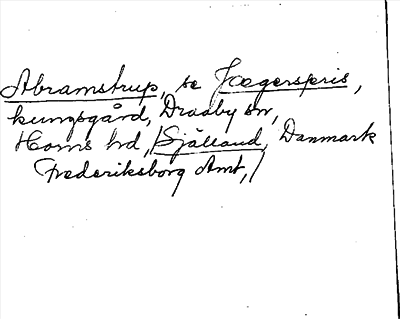 Abramstrup, se Jægerspris,
kungsgård, Draaby sn,
Horns hd, Själland, Danmark
Frederiksborg Amt,